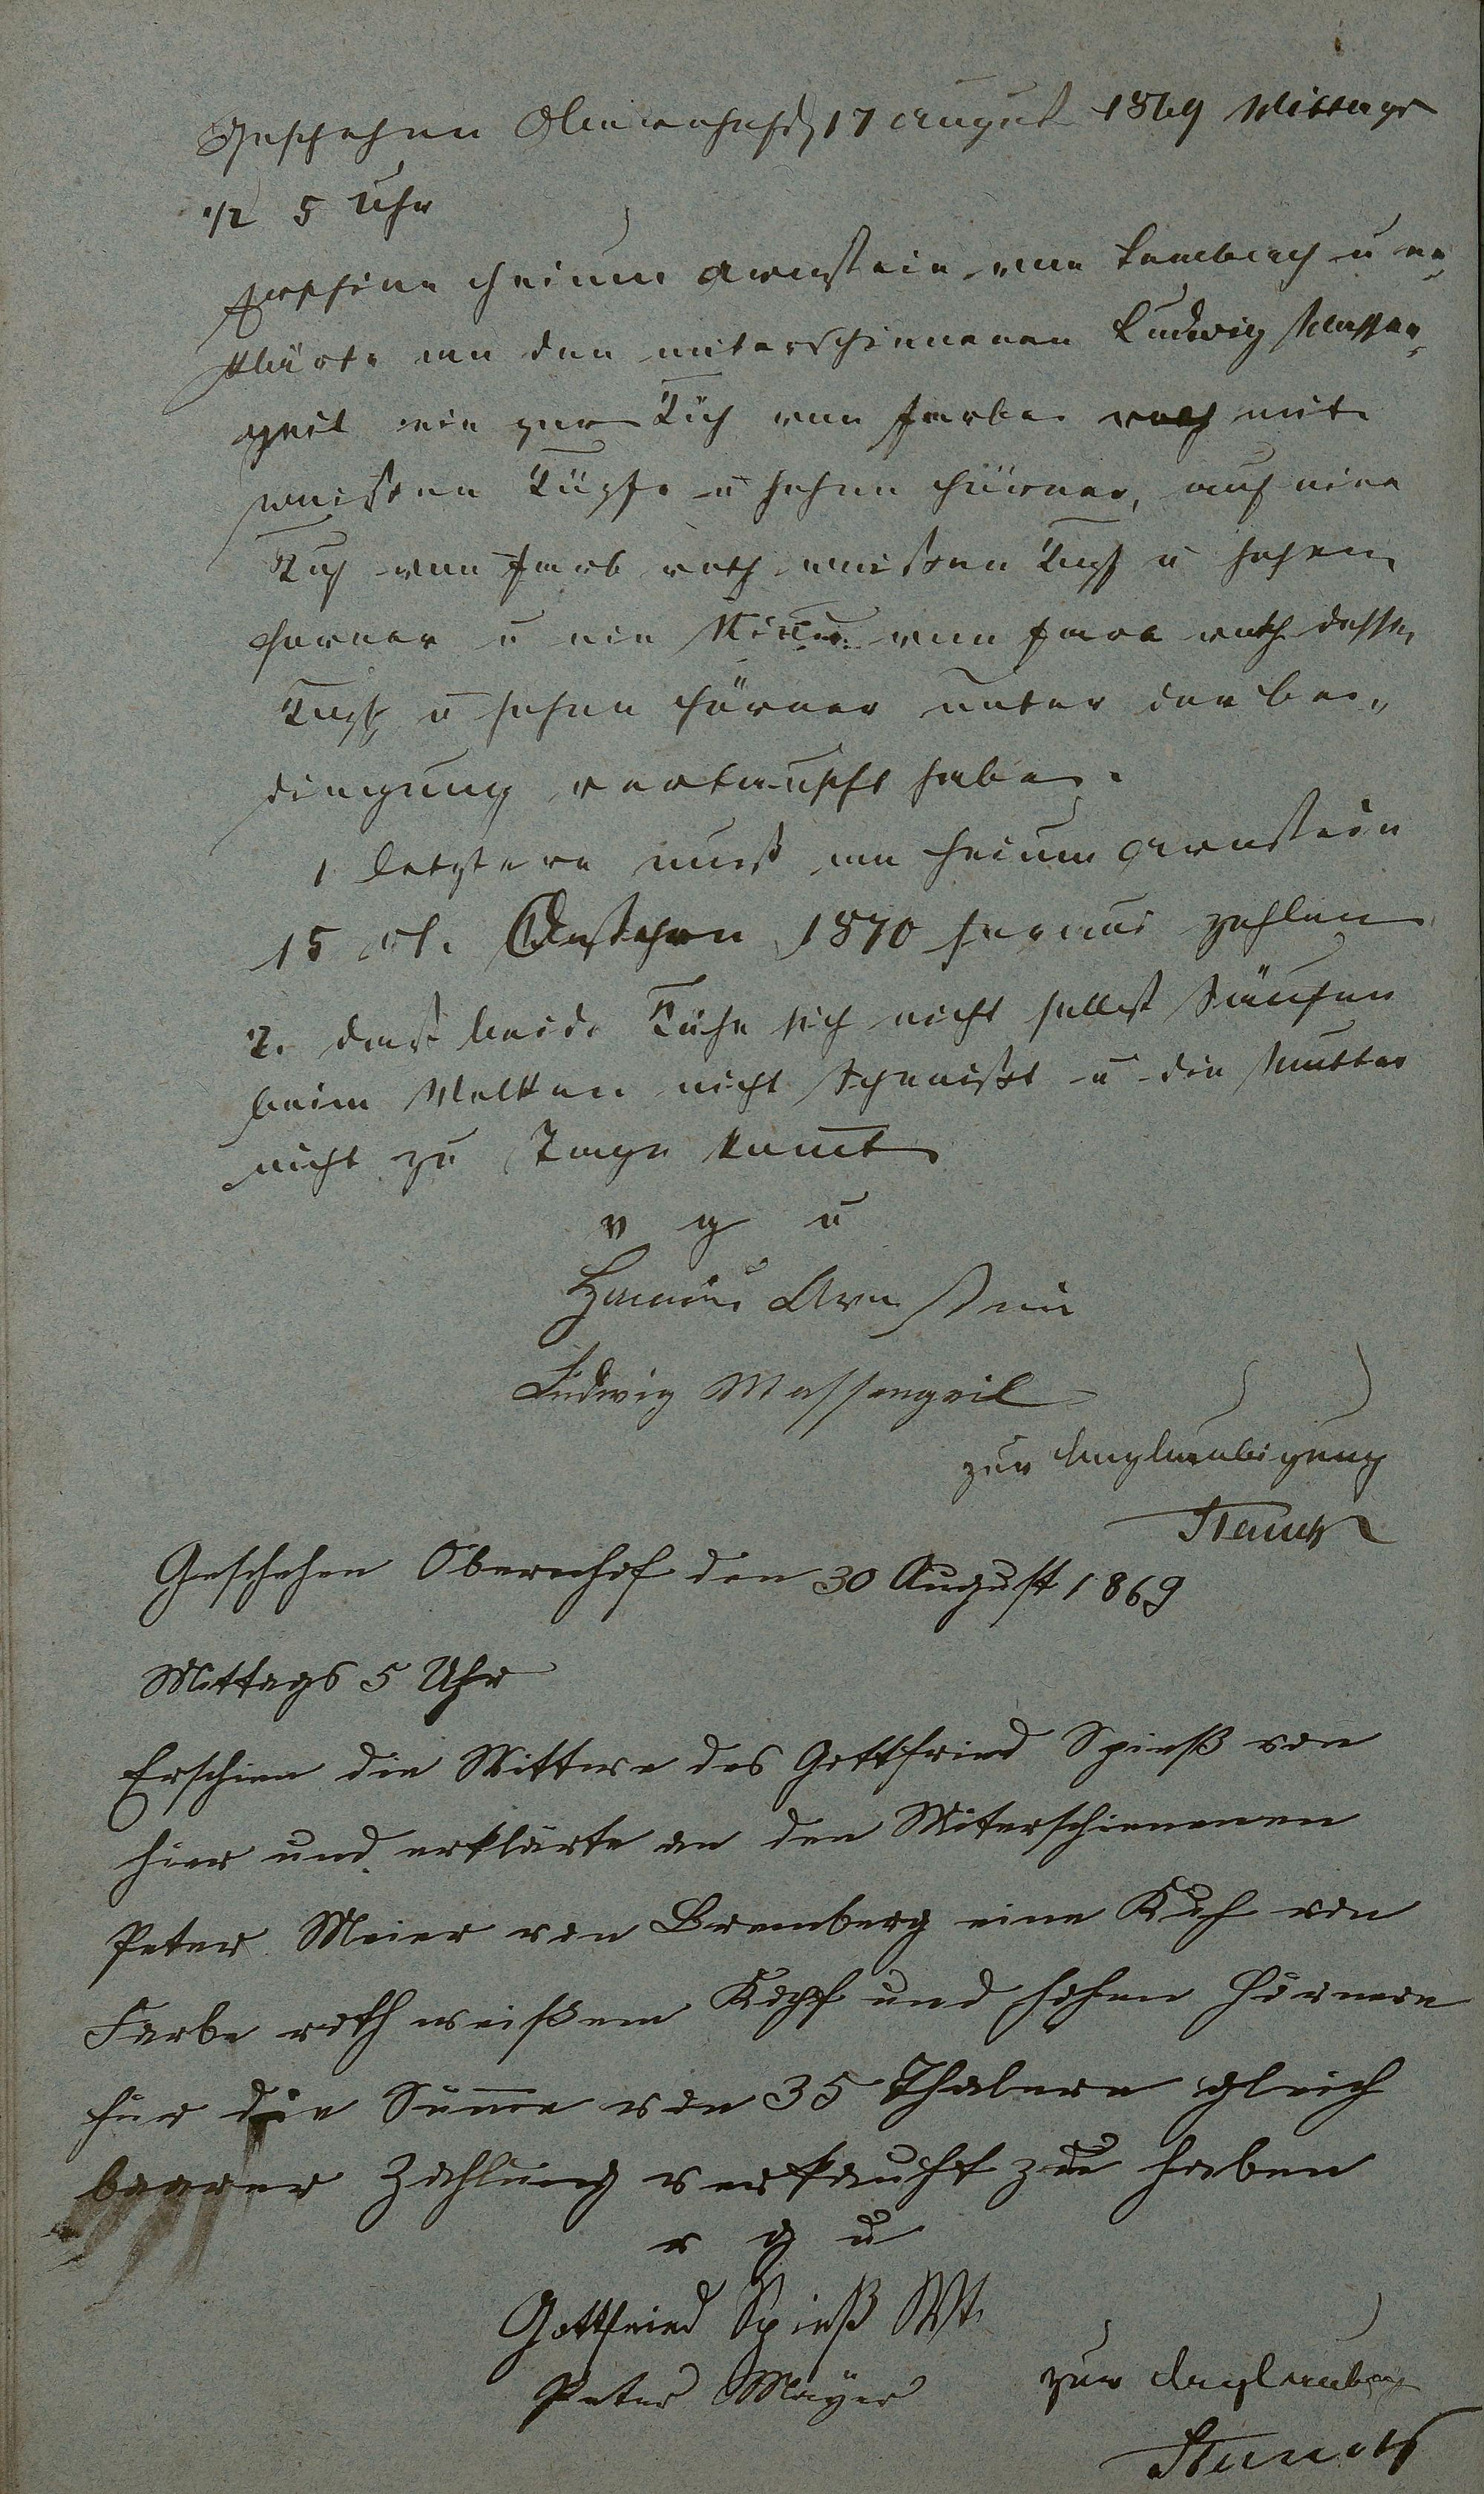 Geschehen Obernhof, 17 August 1869 Mittags
1/2 5 Uhr
Erschien Heium Arnstein von u er„
klärte an den miterschienenen Ludwig Massen„
geil ein par Küh von Farbe roth mit
weißen Köpfe u hohen Hörner, auch eine
Kuh von Farb roth weißen Kopf u hohen
Horner u ein von Farb roth dessen
Kopf u hohen Hörner unter der be„
dingung verkaupft habe.
1 letztere muß an Heium Arnstein
15 rl. Ostern 1870 heraus zahlen
2. daß beide Kühe sich nicht selbst säufen
beim Melken nicht schmißt u die Mutter
nicht zu Tage komt
v g u
Heium Arnstein
Ludwig Massengeil
zur Beglaubigung
Geschehen Obernhof den 30 August 1869
Mittags 5 Uhr
Erschien die Wittwe des Gottfried Spieß von
hier und erklärte an den Miterschienenen
Peter Meier von Bremberg eine Kuh von
Farbe roth weißem Kopf und hohen Hörnern
für die Summe von 35 Thalern gleich
baarer Zahlung verkauft zu haben
v g u
Gottfried Spieß Wt.
Peter Mayer zur Beglaubg